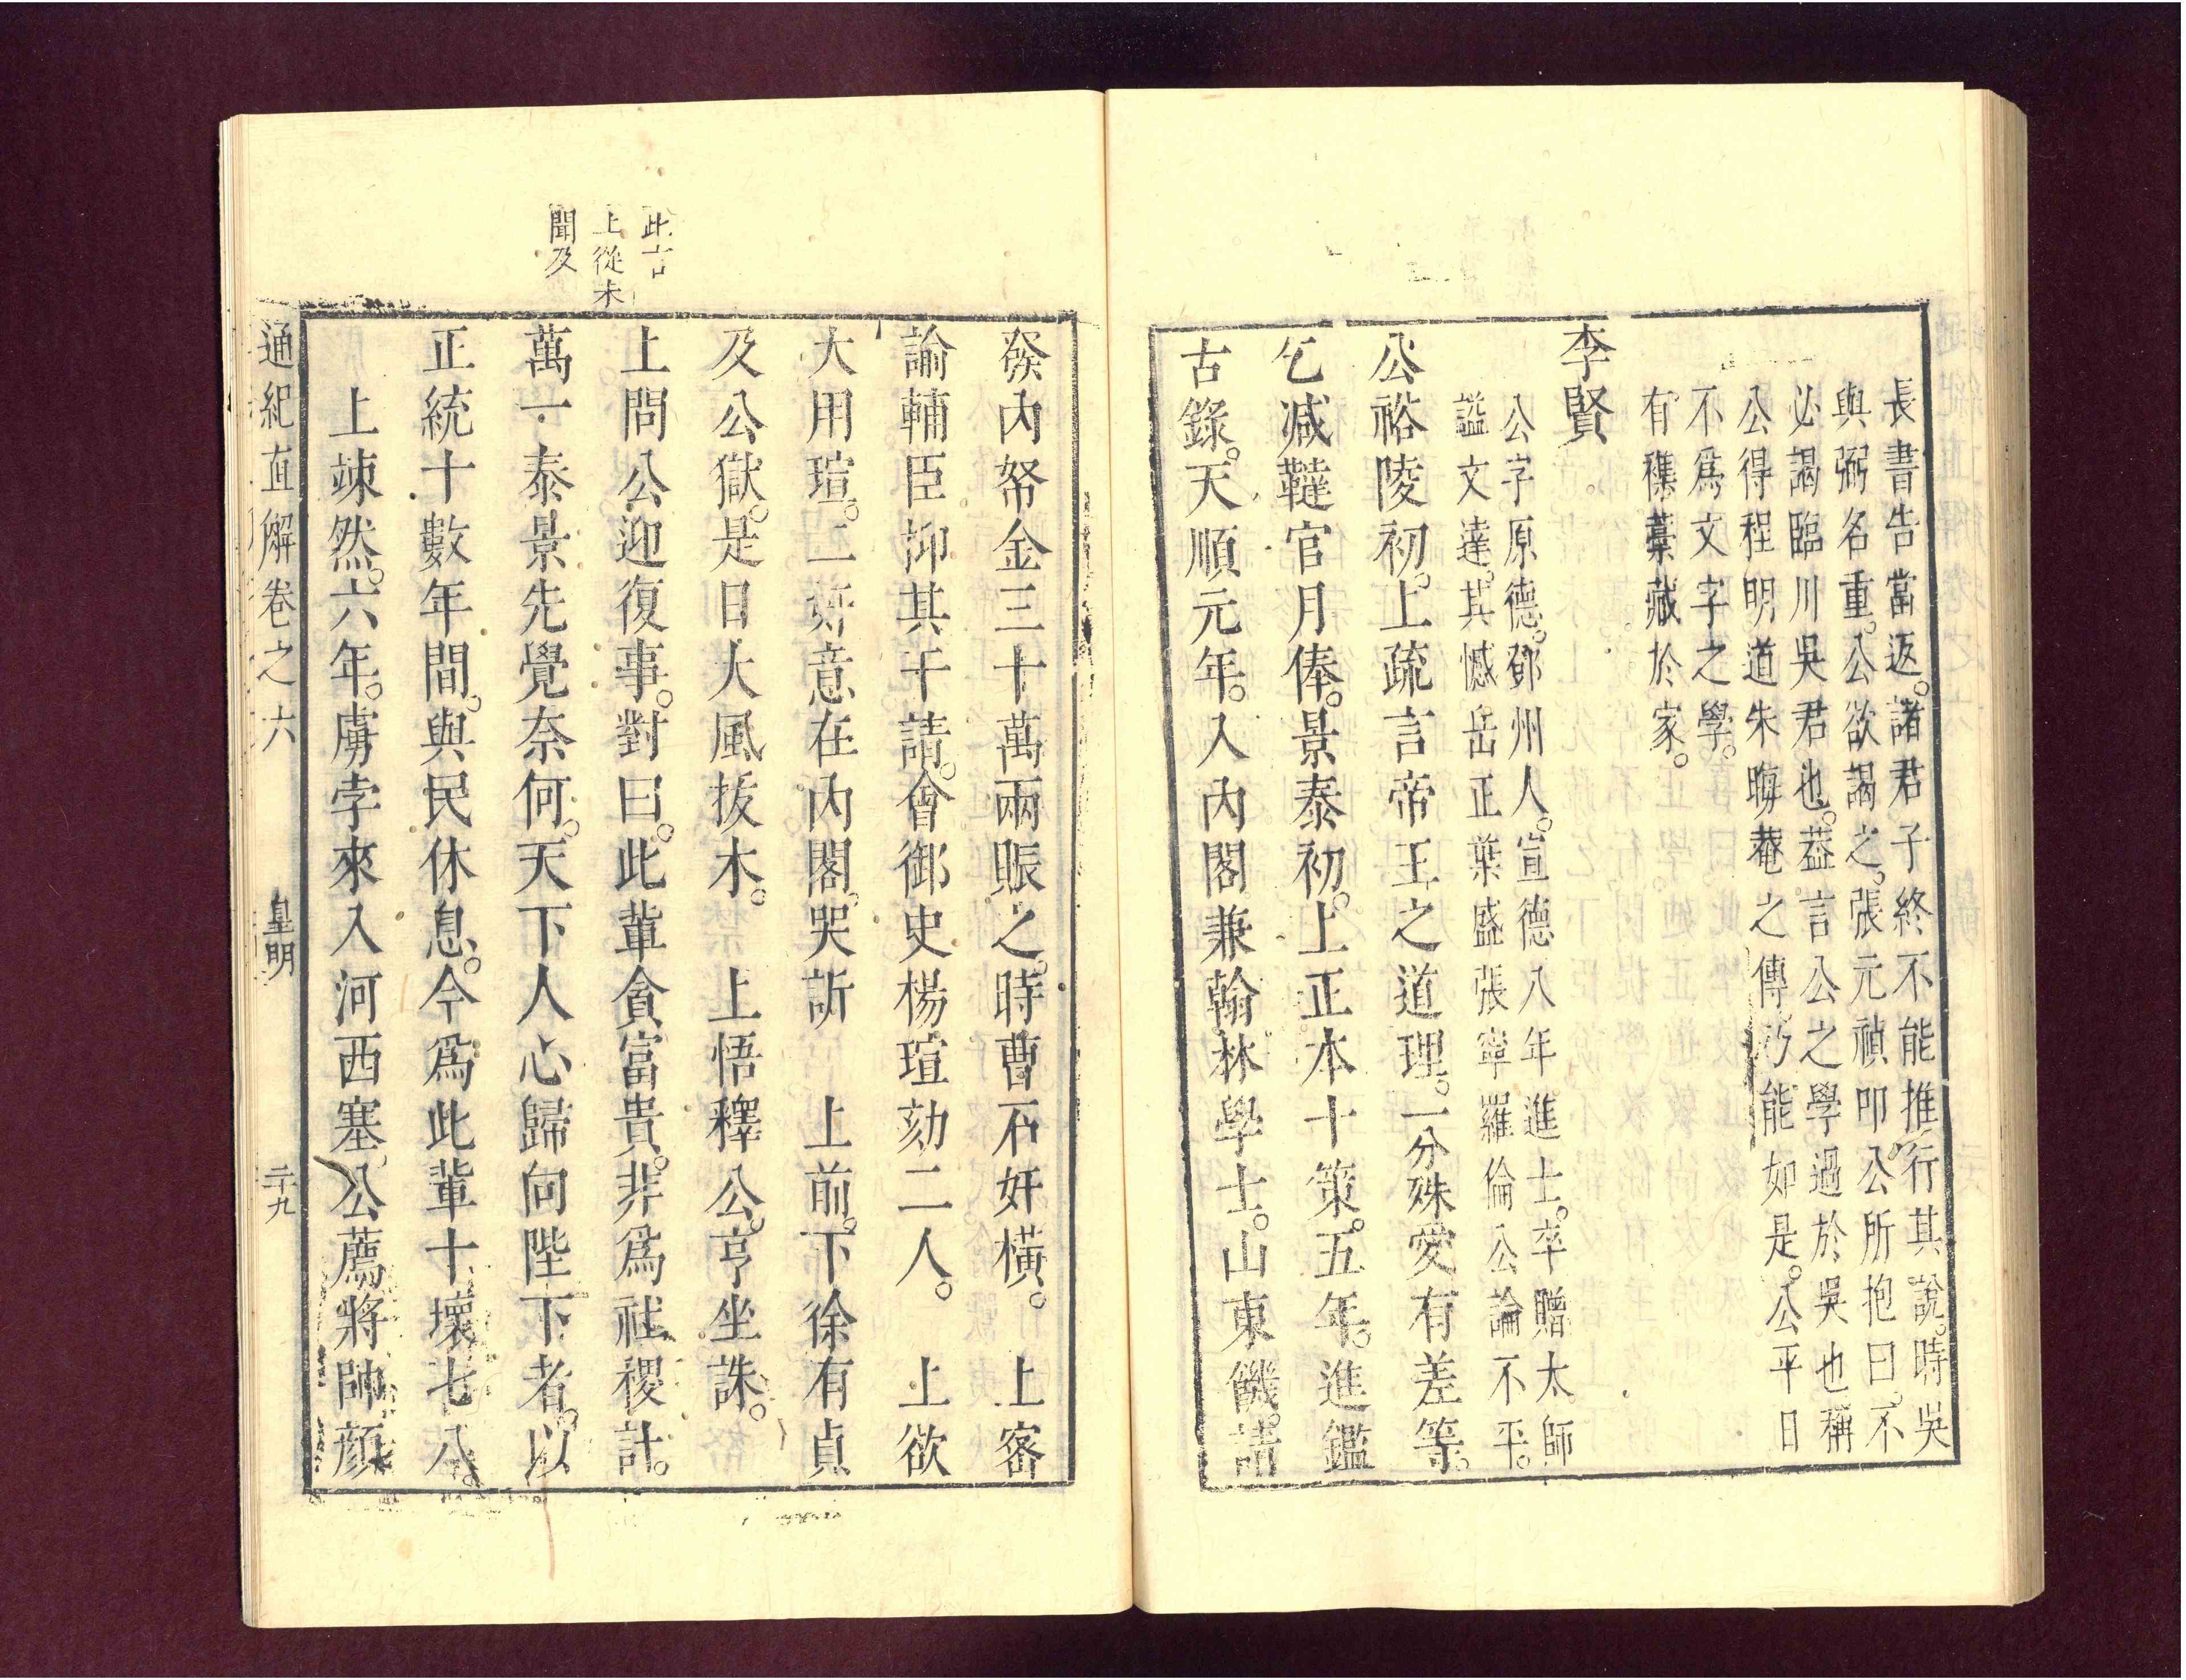 長書告當返。諸君子終不能推行其說。時吳
與弼名重。公欲謁之。張元禎叩公所抱曰。不
必謁臨川吳君也。葢言公之學過於吳也稱
公得程明道朱晦菴之傳。乃能如是。公平日
不爲文字之學。
有襍藁藏於家。
李賢
公字原德。鄧州人。宣德八年進士。卒贈太師
謚文達。其憾岳正葉盛張寧羅倫公論不平。
公裕陵初。上疏言帝王之道理。一分殊愛有差等。
乞減韃官月俸。景泰初。上正本十策。五年。進鑑
古錄。天順元年。入內閣兼翰林學士。山東饑。請
發內帑金三十萬兩賑之。時曹石奸橫。 上密
諭輔臣抑其干請。會御史楊瑄劾二人。 上欲
大用瑄。二奸意在內閣。哭訴 上前。下徐有貞
及公獄。是日大風拔木。 上悟釋公。亨坐誅。
上問公迎復事。對曰。此輩貪富貴。非爲社稷計。
萬一泰景先覺奈何。天下人心歸向陛下者。以
正統十數年間。與民休息。今爲此輩十壞七八。
上竦然。六年。虜孛來入河西塞。公薦將帥。顔
此言
上從未
聞及
通紀直解卷之六 皇明 二十九